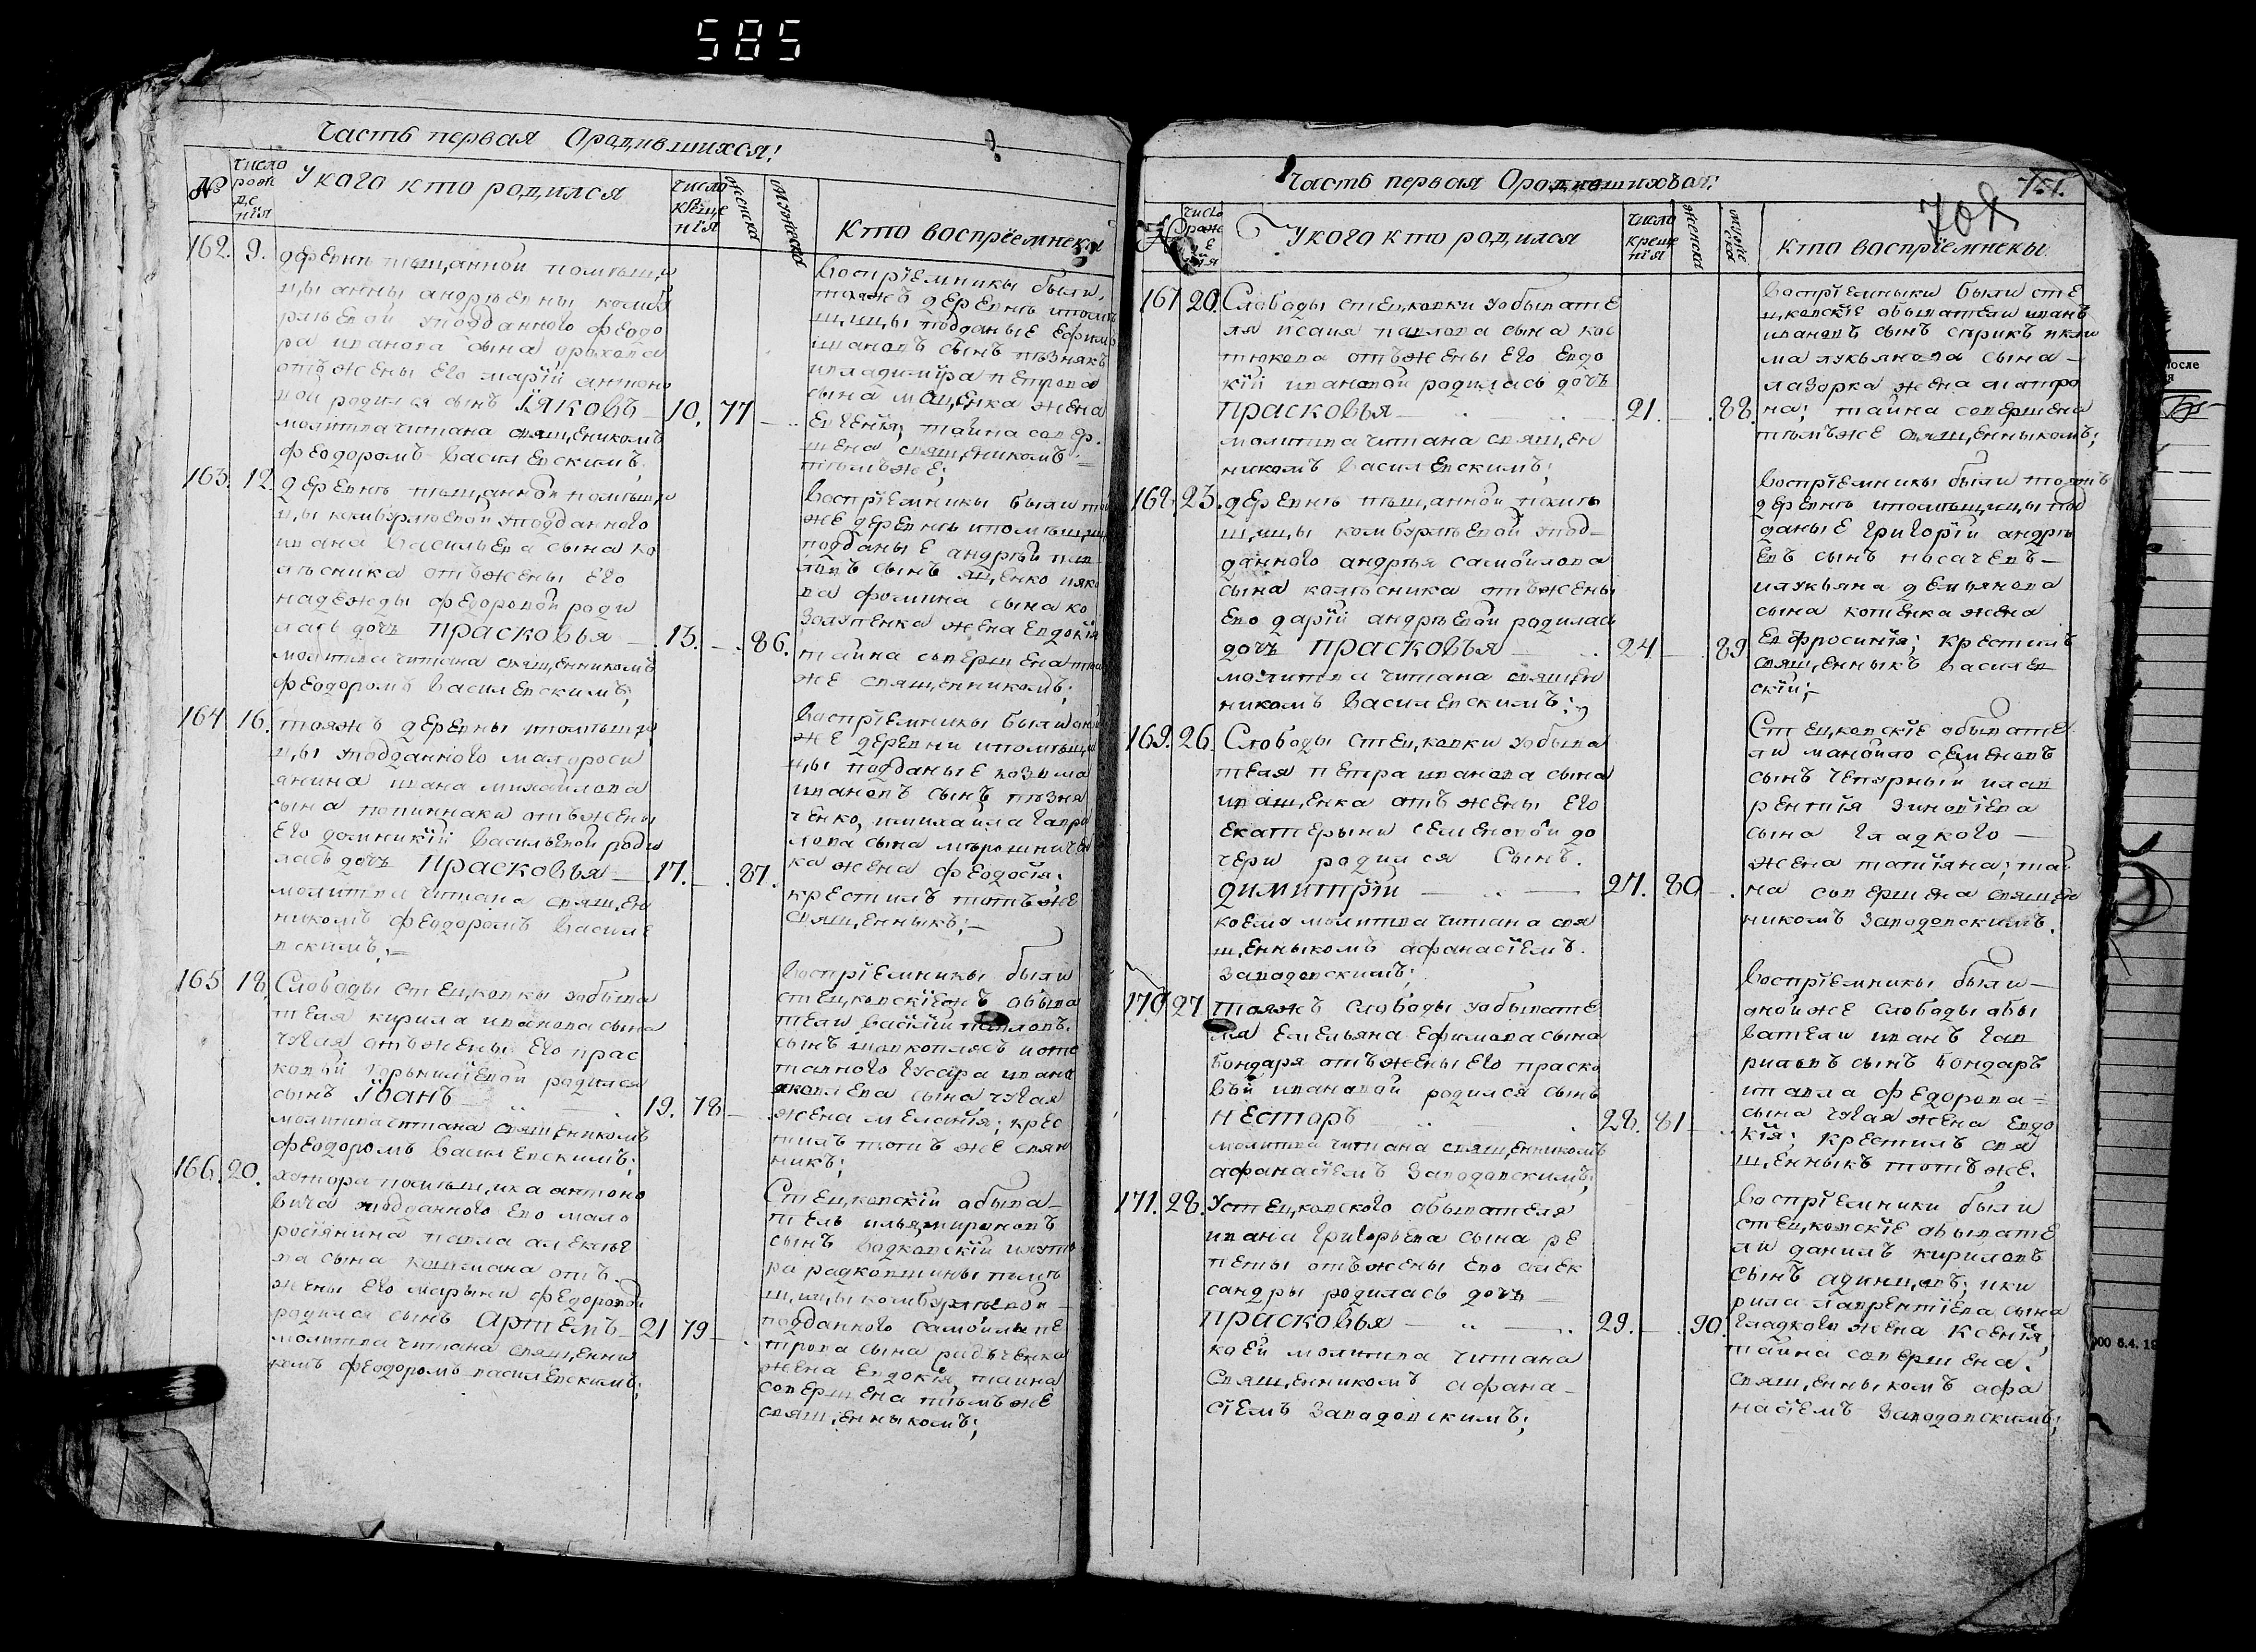 585
Часть первая Ородившихся!
№
число рожденїя
У кого кто родился
число крещенїя
женска
мужеска
Кто воспрїемнеки
162. 9.
деревни пещанной помещи
цы анны андреевны комбу
рлеевой уподданного феодо
ра иванова сына
отъ жены его марїи антоно
вой родился сынъ Їяковъ 10. 77
молитва читана священикомъ
феодоромъ Василевскимъ.
воспрїемники были
тояжъ деревнѣ ипомѣ
щицы подданые ефимъ
ивановъ сынъ пѣзнякъ
ивладимїра петрова
сына жена
Евгенїя; тайна совер
шена священикомъ
тѣмъ же;
163. 12.
деревнѣ пещанной помещи
цы комбурлеевой уподданного
ивана Васильева сына ко
лѣсника отъ жены его
надежды федоровой роди
лась дочь прасковья 13. 86.
молитва читана священникомъ
феодоромъ Василевскимъ;
Воспрїемники были тоя
же деревнѣ ипомѣщицы
подданые андрѣй пав
ловъ сынъ ияко
ва фомина сына ко
жена Евдокїя
тайна совершена тѣм
же священникомъ;
164. 16.
тояжъ деревны ипомѣщи
цы уподданного малороси
янина ивана михайлова
сына отъ жены
его домникїи Васильевой роди
лась дочь Прасковья 17. 87.
молитва читана священ
никомъ феодоромъ Василе
вскимъ;
Воспрїемники были аной
же деревни ипомѣщи
цы подданые козьма
ивановъ сынъ пѣзня
ченко, имихаила гаври
лова сына мѣрошничен
ка жена феодосїя;
крестилъ тотъ же
священныкъ;
165 18.
Слободы стецковки уобыва
теля кирила иванова сына
чугая отъ жены его прас
ковїи корнилїевой родился
сынъ Їоанъ 19. 78
молитва читана священикомъ
феодоромъ Василевскимъ;
Воспрїемники были
стецковскїежъ обыва
тели василїй павловъ
сынъ иотс
тавного гусара ивана
яковлева сына чугая
жена меланїя; крес
тилъ тотъ же свящ
никъ;
166. 20.
хутора помѣщика антоно
вича уподданного его мало
росїянина павла алексѣе
ва сына кошмана отъ
жены его марыны федоровой
родился сынъ Артемъ 21 79
молитва читана священни
комъ феодоромъ василевскимъ;
Стецковскїй обыва
тель илья мироновъ
сынъ иухуто
ра радковщины помѣ
щицы комбурлѣевой
подданного самойла пе
трова сына радченка
жена Евдокїя тайна
совершена тѣмъ же
священныкомъ;
Часть первая Ородившихся!
701
число рожденїя
У кого кто родился
число крещенїя
женска
мужеска
кто воспрїемнекы
167 20.
Слободы стецковки уобывате
ля исаия павлова сына кос
тюкова отъ жены его Евдо
кїи ивановой родилась дочь
прасковья 21. 88.
молитва читана священ
никомъ Василевскимъ;
Воспрїемныки были сте
цковскїе обыватели иванъ
ивановъ сынъ сирикъ икли
ма лукьянова сына
лазорка жена матро
на; тайна совершена
тѣмъ же священныкомъ;
168. 23.
деревнѣ пещанной помѣ
щицы комбурлѣевой упод
данного андрея самойлова
сына колѣсника отъ жены
его дарїи андрѣевой родилась
дочь прасковья 24 89
молитва читана священ
никомъ Василевскимъ;
Воспрїемники были тояжъ
деревнѣ ипомѣщицы под
даные Григорїй андрѣ
евъ сынъ носачевъ
илукьяна демьянова
сына котенка жена
Евфросинїя; крестилъ
священныкъ василев
скїй;
169. 26.
Слободы стецковки уобыва
теля петра иванова сына
иващенка отъ жены его
екатерыны семеновой до
чери родился Сынъ.
димитрїй 27. 80
коему молитва читана свя
щенныкомъ афанасїемъ
Заводовскимъ;
Стецковскїе обывате
ли манойло семеновъ
сынъ чепурный илав
рентїя зиновїева
сына гладкого
жена татїяна; тай
на совершена священ
никомъ Заводовскимъ.
170 27
тояжъ слободы уобывате
ля Емельяна Ефимова сына
бондаря отъ жены его праско
вьи ивановой родился сынъ
нестаръ 28. 81
молитва читана священникомъ
афанасїемъ Заводовскимъ;
Воспрїемники были
аной же слободы обы
ватели иванъ гав
риловъ сынъ бондаръ
ипавла федорова
сына чугая жена Евдо
кїя; крестилъ свя
щенныкъ тотъ же.
171. 28.
Устецковского обывателя
ивана григорьева сына ре
петы отъ жены его алек
сандры родилась дочь
прасковья 29. 90.
коей молитва читана
Священникомъ афана
сїемъ Заводовскимъ;
Воспрїемники были
стецковскїе обывате
ли данилъ кириловъ
сынъ одинцовъ; ики
рила лаврентїева сына
гладкого жена Ксенїя;
тайна совершена
священныкомъ афа
насїемъ Заводовскимъ;